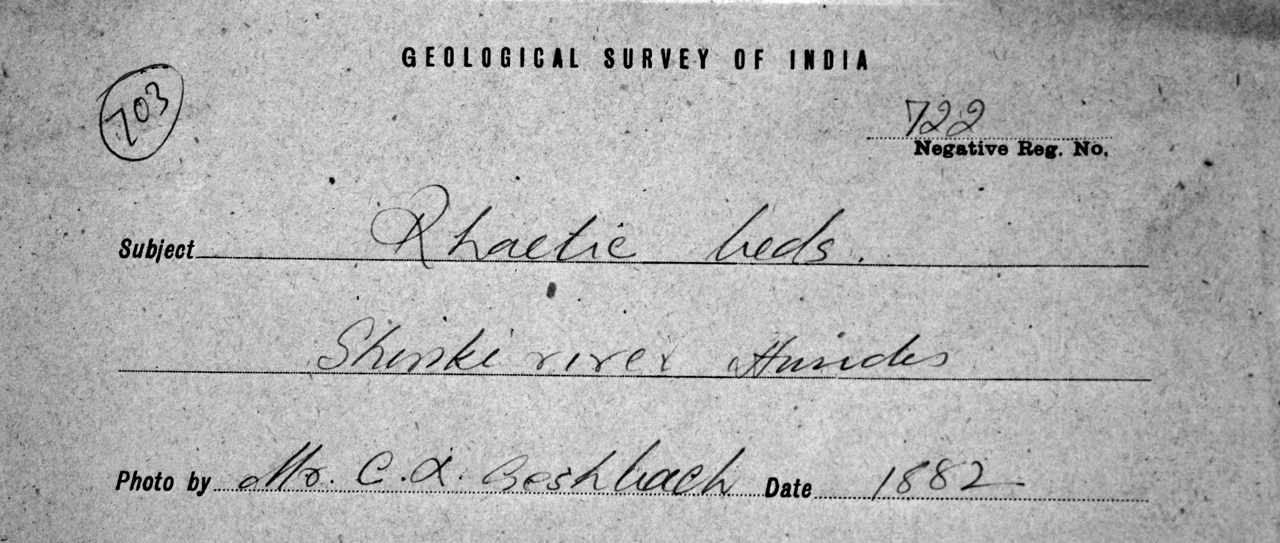 GEOLOGICAL SURVEY OF INDIA
703
722
Negative Reg. No.
Subject Rhaetic beds.
Shinki river Hundes
Photo by Mr. C. L. Geshbach Date 1882